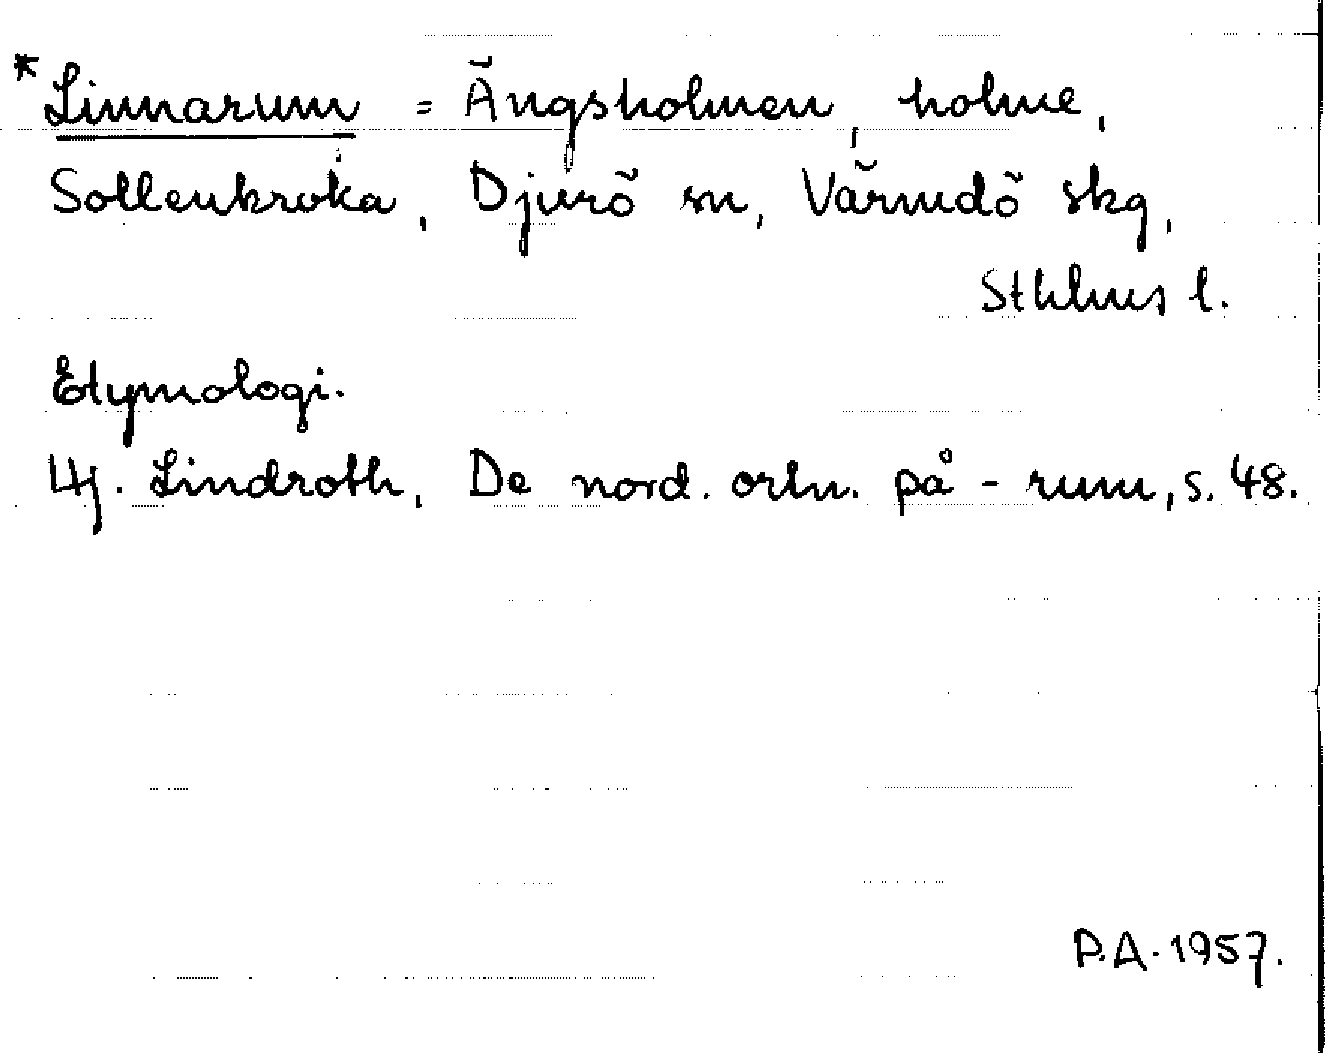 *Linnarum = Ängsholmen, holme,
Sollenkroka, Djurö sn, Värmdö skg,
Sthlms l.
Etymologi.
Hj. Lindroth, De nord. ortn. på -rum, s. 48.
P.A. 1957.